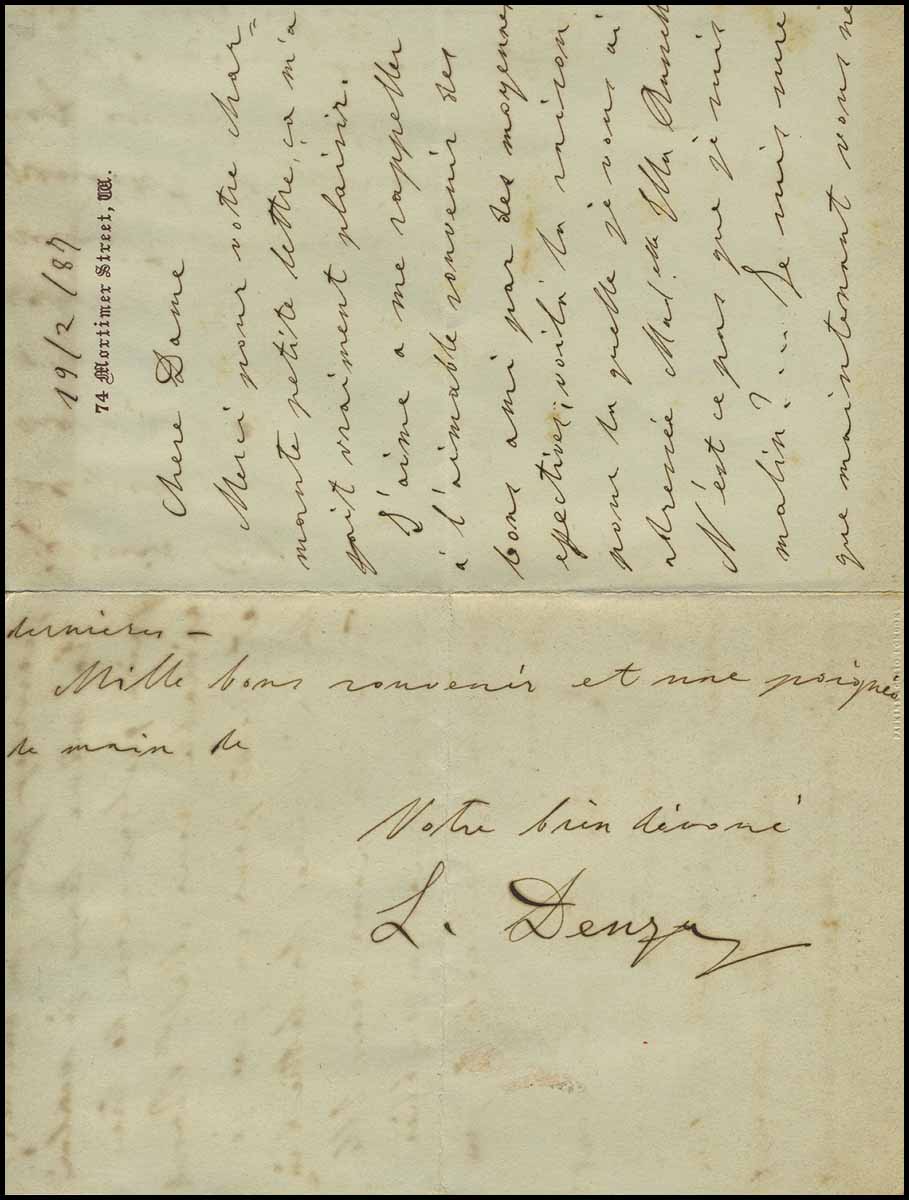 19/2/87
74 Mortimer Street, W.
Chere Dame
Merci pour votre char-
mante petite lettre, ça m'a
fait vraiment plaisir.
J'aime a me rappeller
à l'aimable souvenir des
bons ami par des moyennes
effectives; voilà la raison
pour la quelle je vous ai
adressée Mad.elle Ella Russell
N'est ce pas que je suis
malin? .... Je suis sure
que maintenant vous ne
dernieres —
Mille bons souvenir et une poignée
de main de
Votre bien dévoué
L. Denza